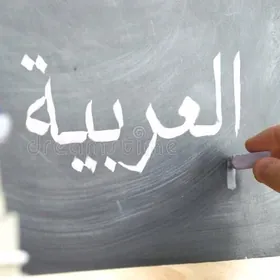 العربية
dreamstime